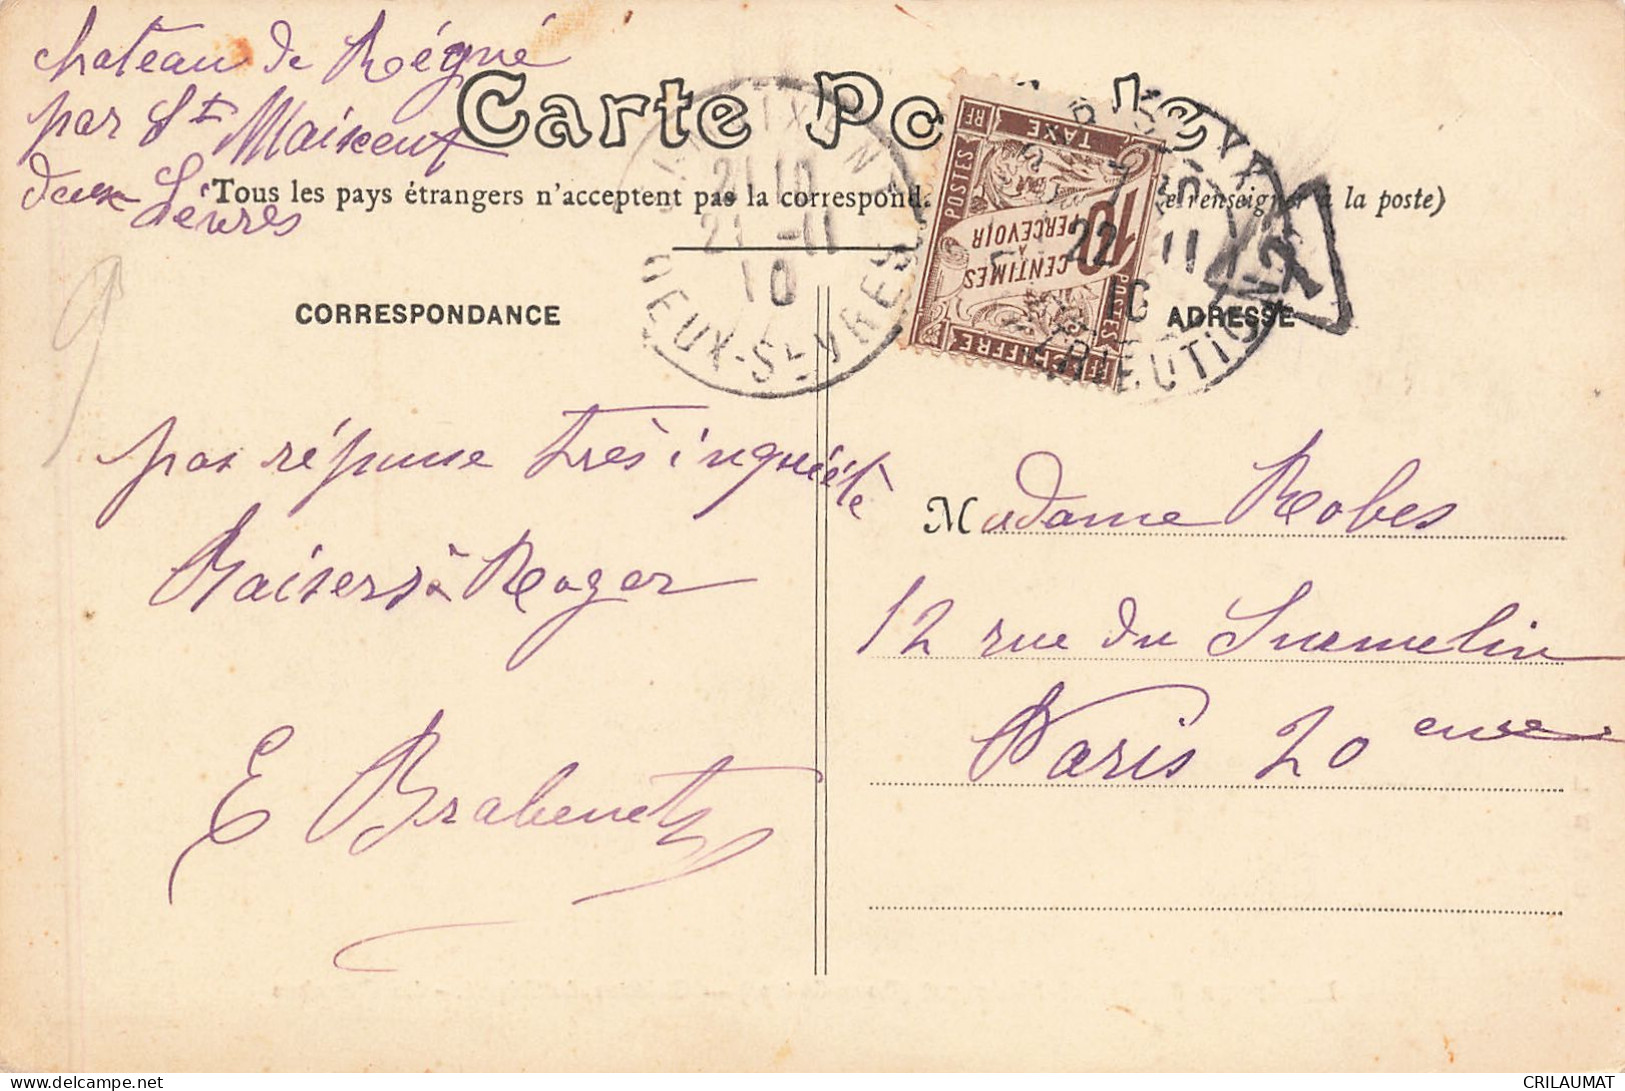 chateau de Régné
par St Maixent
deux Sèvres
Carte Po
Tous les pays étrangers n'acceptent pas la correspond. e renseigner à la poste)
21 10
21 -11
10
DEUX-SEVRES
POSTES
RF
TAXE
10
CENTIMES
À
PERCEVOIR
CHIFFRE
POSTES
22 11
10
DISTRIBUTION
T
CORRESPONDANCE
ADRESSE
pas répunse très inquiétè
Baisers à Roger
E Brabenetz
Madame Robes
12 rue du Surmelin
Paris 20 eme
CRILAUMAT